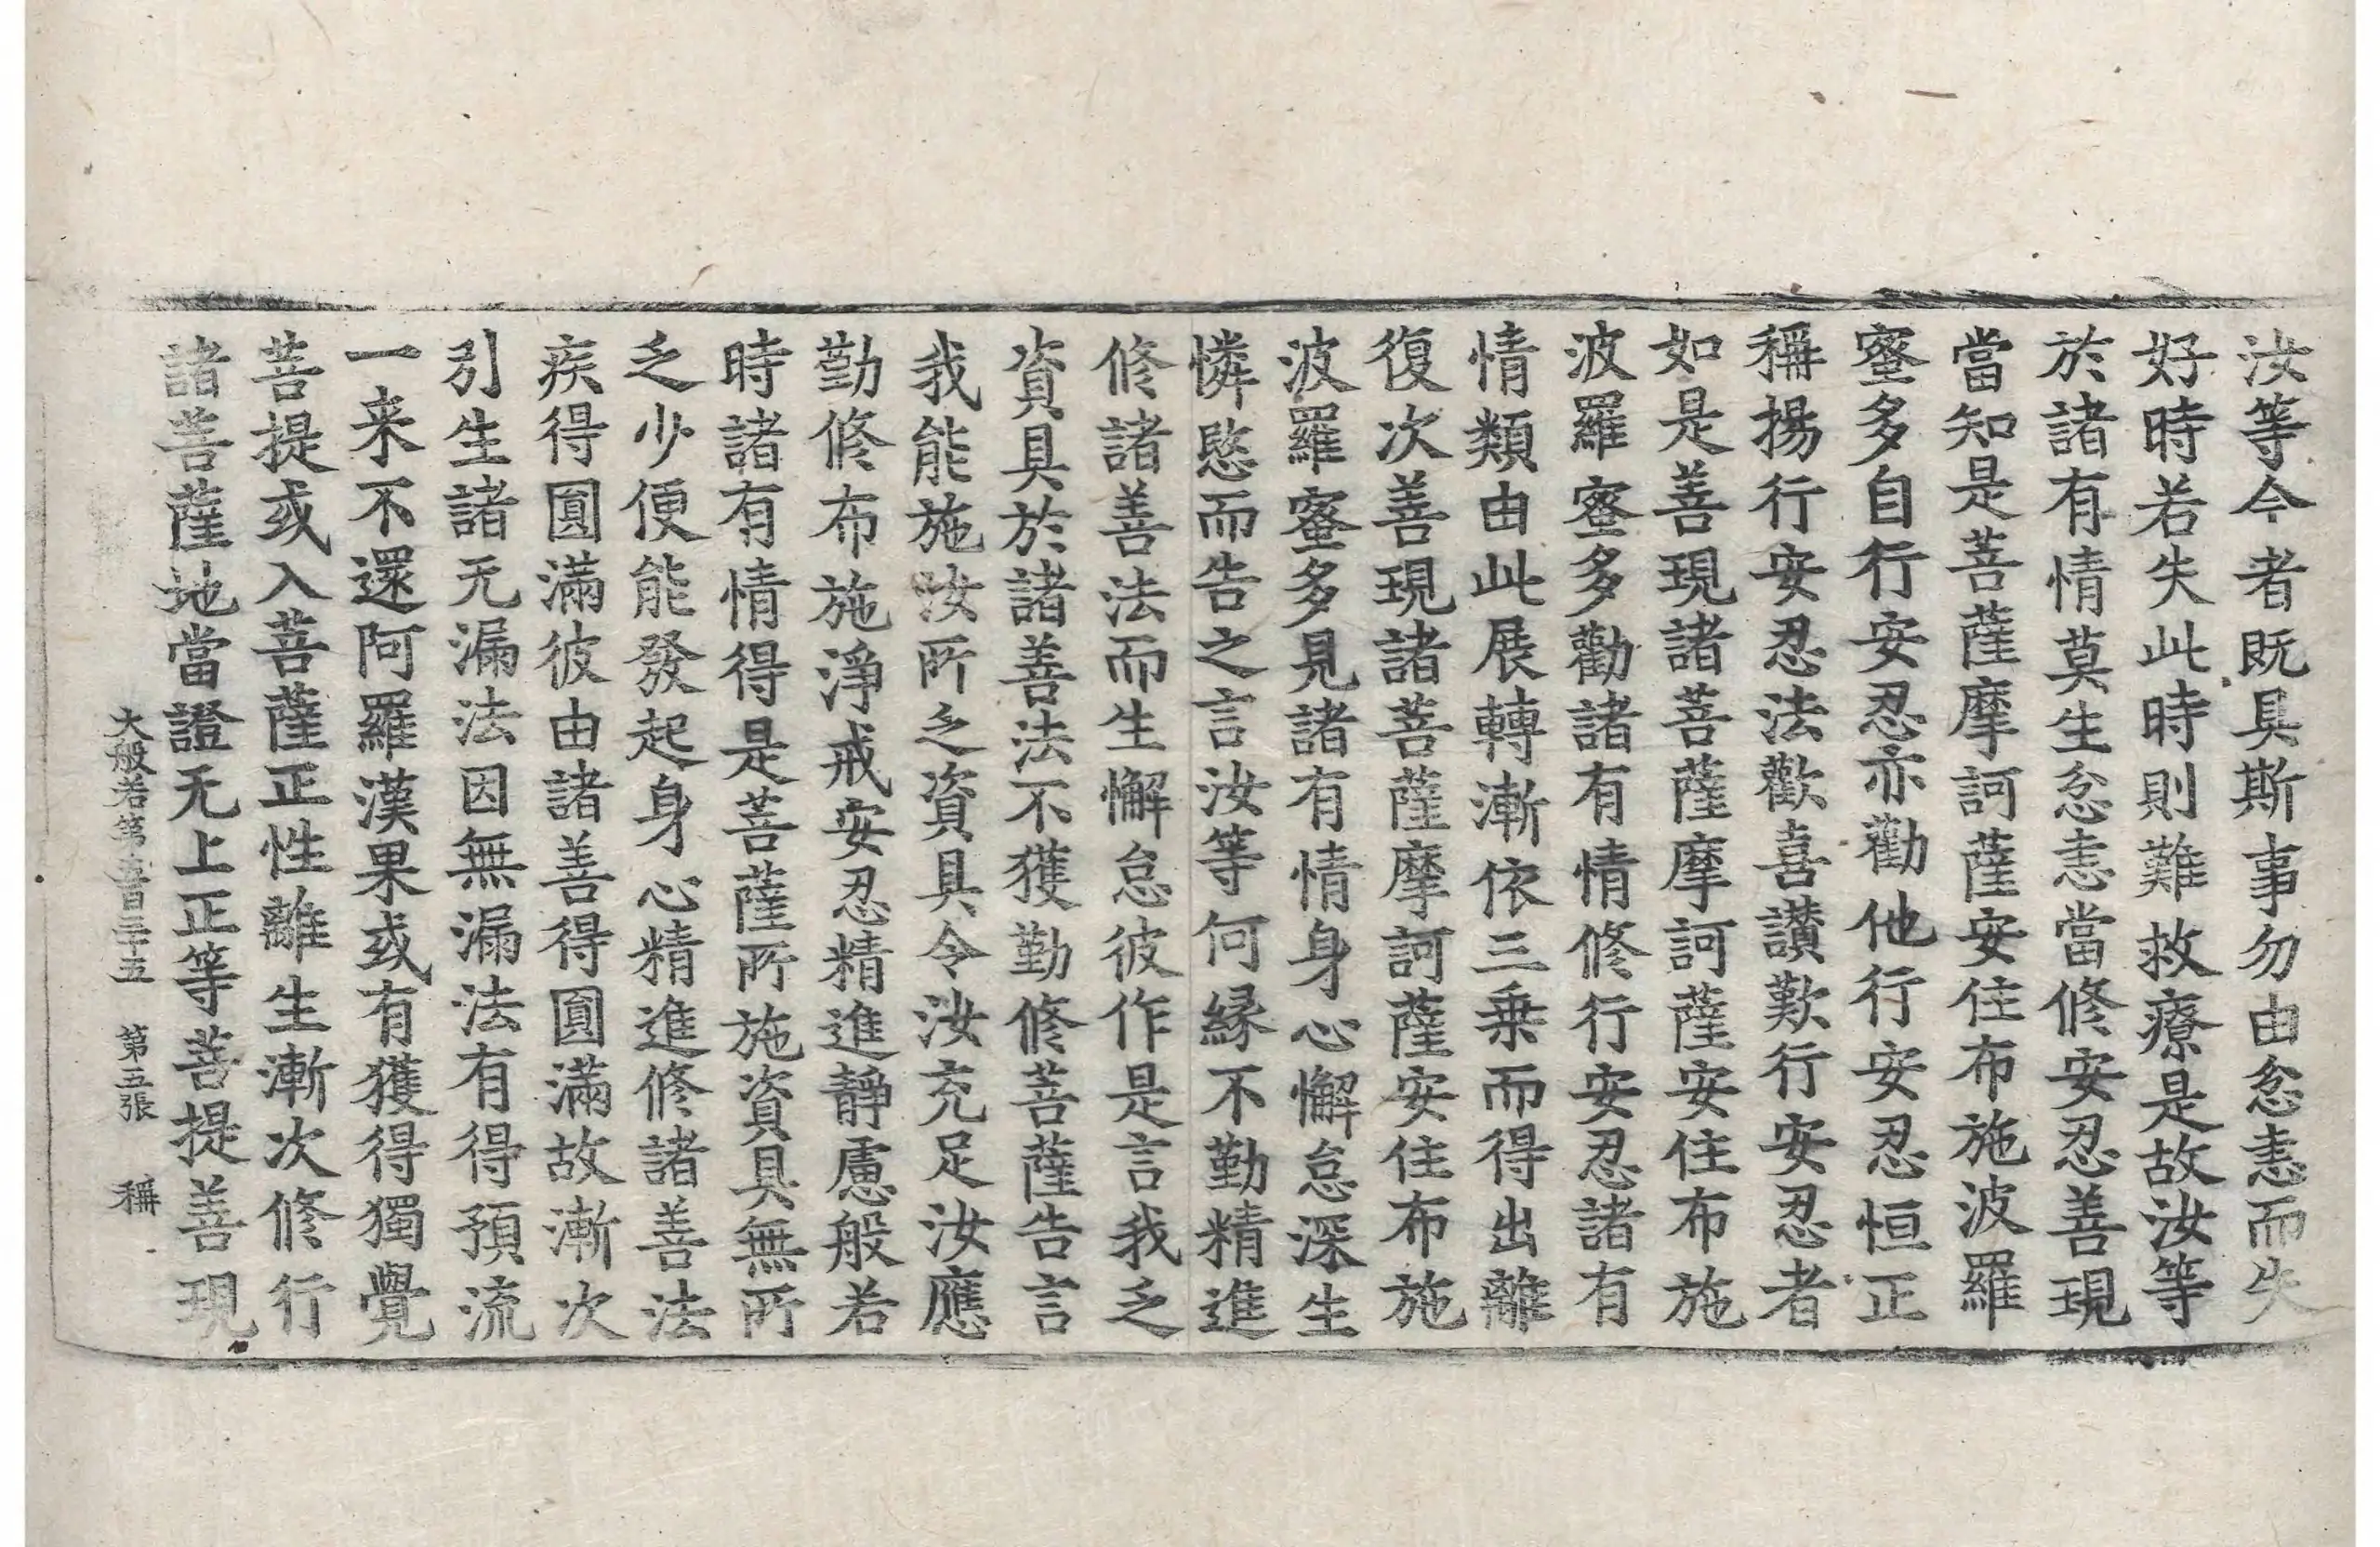 汝等今者既具斯事勿由忿恚而失
好時若失此時則難救療是故汝等
於諸有情莫生忿恚當修安忍善現
當知是菩薩摩訶薩安住布施波羅
蜜多自行安忍亦勸他行安忍恒正
稱揚行安忍法歡喜讃歎行安忍者
如是善現諸菩薩摩訶薩安住布施
波羅蜜多勸諸有情修行安忍諸有
情類由此展轉漸依三乗而得出離
復次善現諸菩薩摩訶薩安住布施
波羅蜜多見諸有情身心懈怠深生
憐愍而告之言汝等何緣不勤精進
修諸善法而生懈怠彼作是言我乏
資具於諸善法不獲勤修菩薩告言
我能施汝所乏資具令汝充足汝應
勤修布施淨戒安忍精進靜慮般若
時諸有情得是菩薩所施資具無所
乏少便能發起身心精進修諸善法
疾得圓滿彼由諸善得圓滿故漸次
引生諸无漏法因無漏法有得預流
一来不還阿羅漢果或有獲得獨覺
菩提或入菩薩正性離生漸次修行
諸菩薩地當證无上正等菩提善現
大般若第五百三十五　第五張　稱